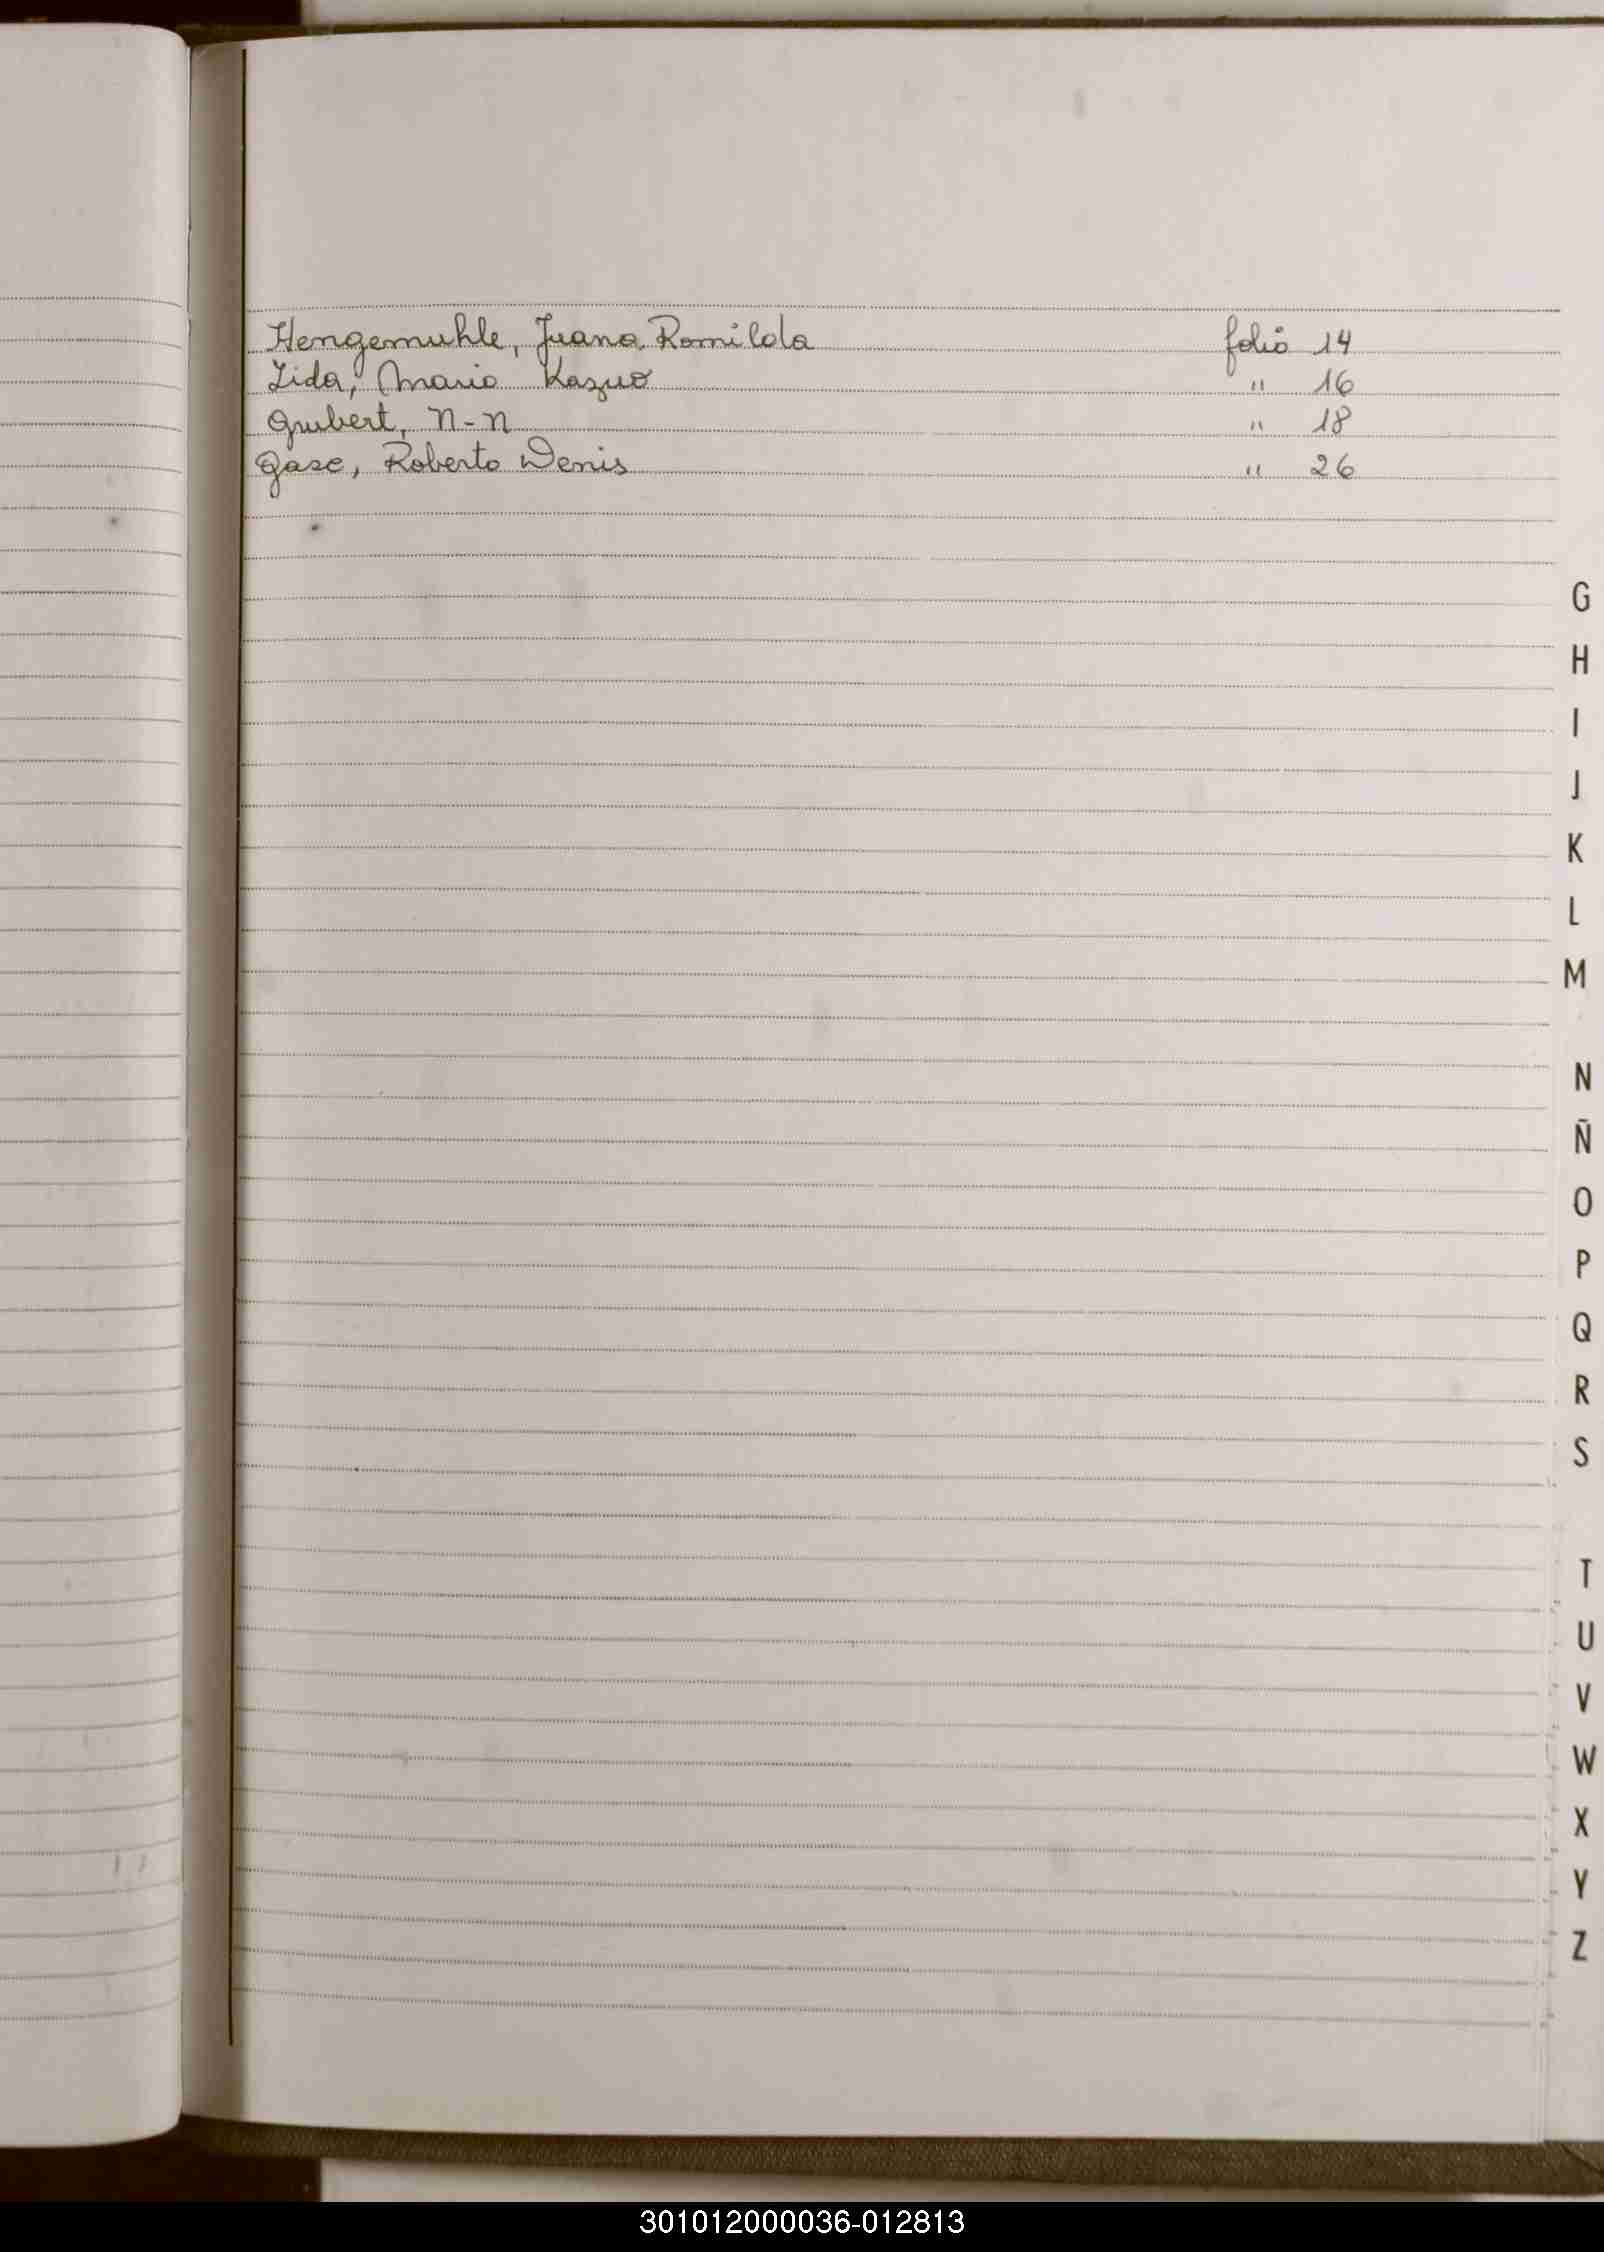 Hengemuhle, Juana Romilda folio 14
Iida, Mario Kazuo " 16
Grubert, N-N " 18
Gase, Roberto Denis " 26
G
H
I
J
K
L
M
N
Ñ
O
P
Q
R
S
T
U
V
W
X
Y
Z
301012000036-012813